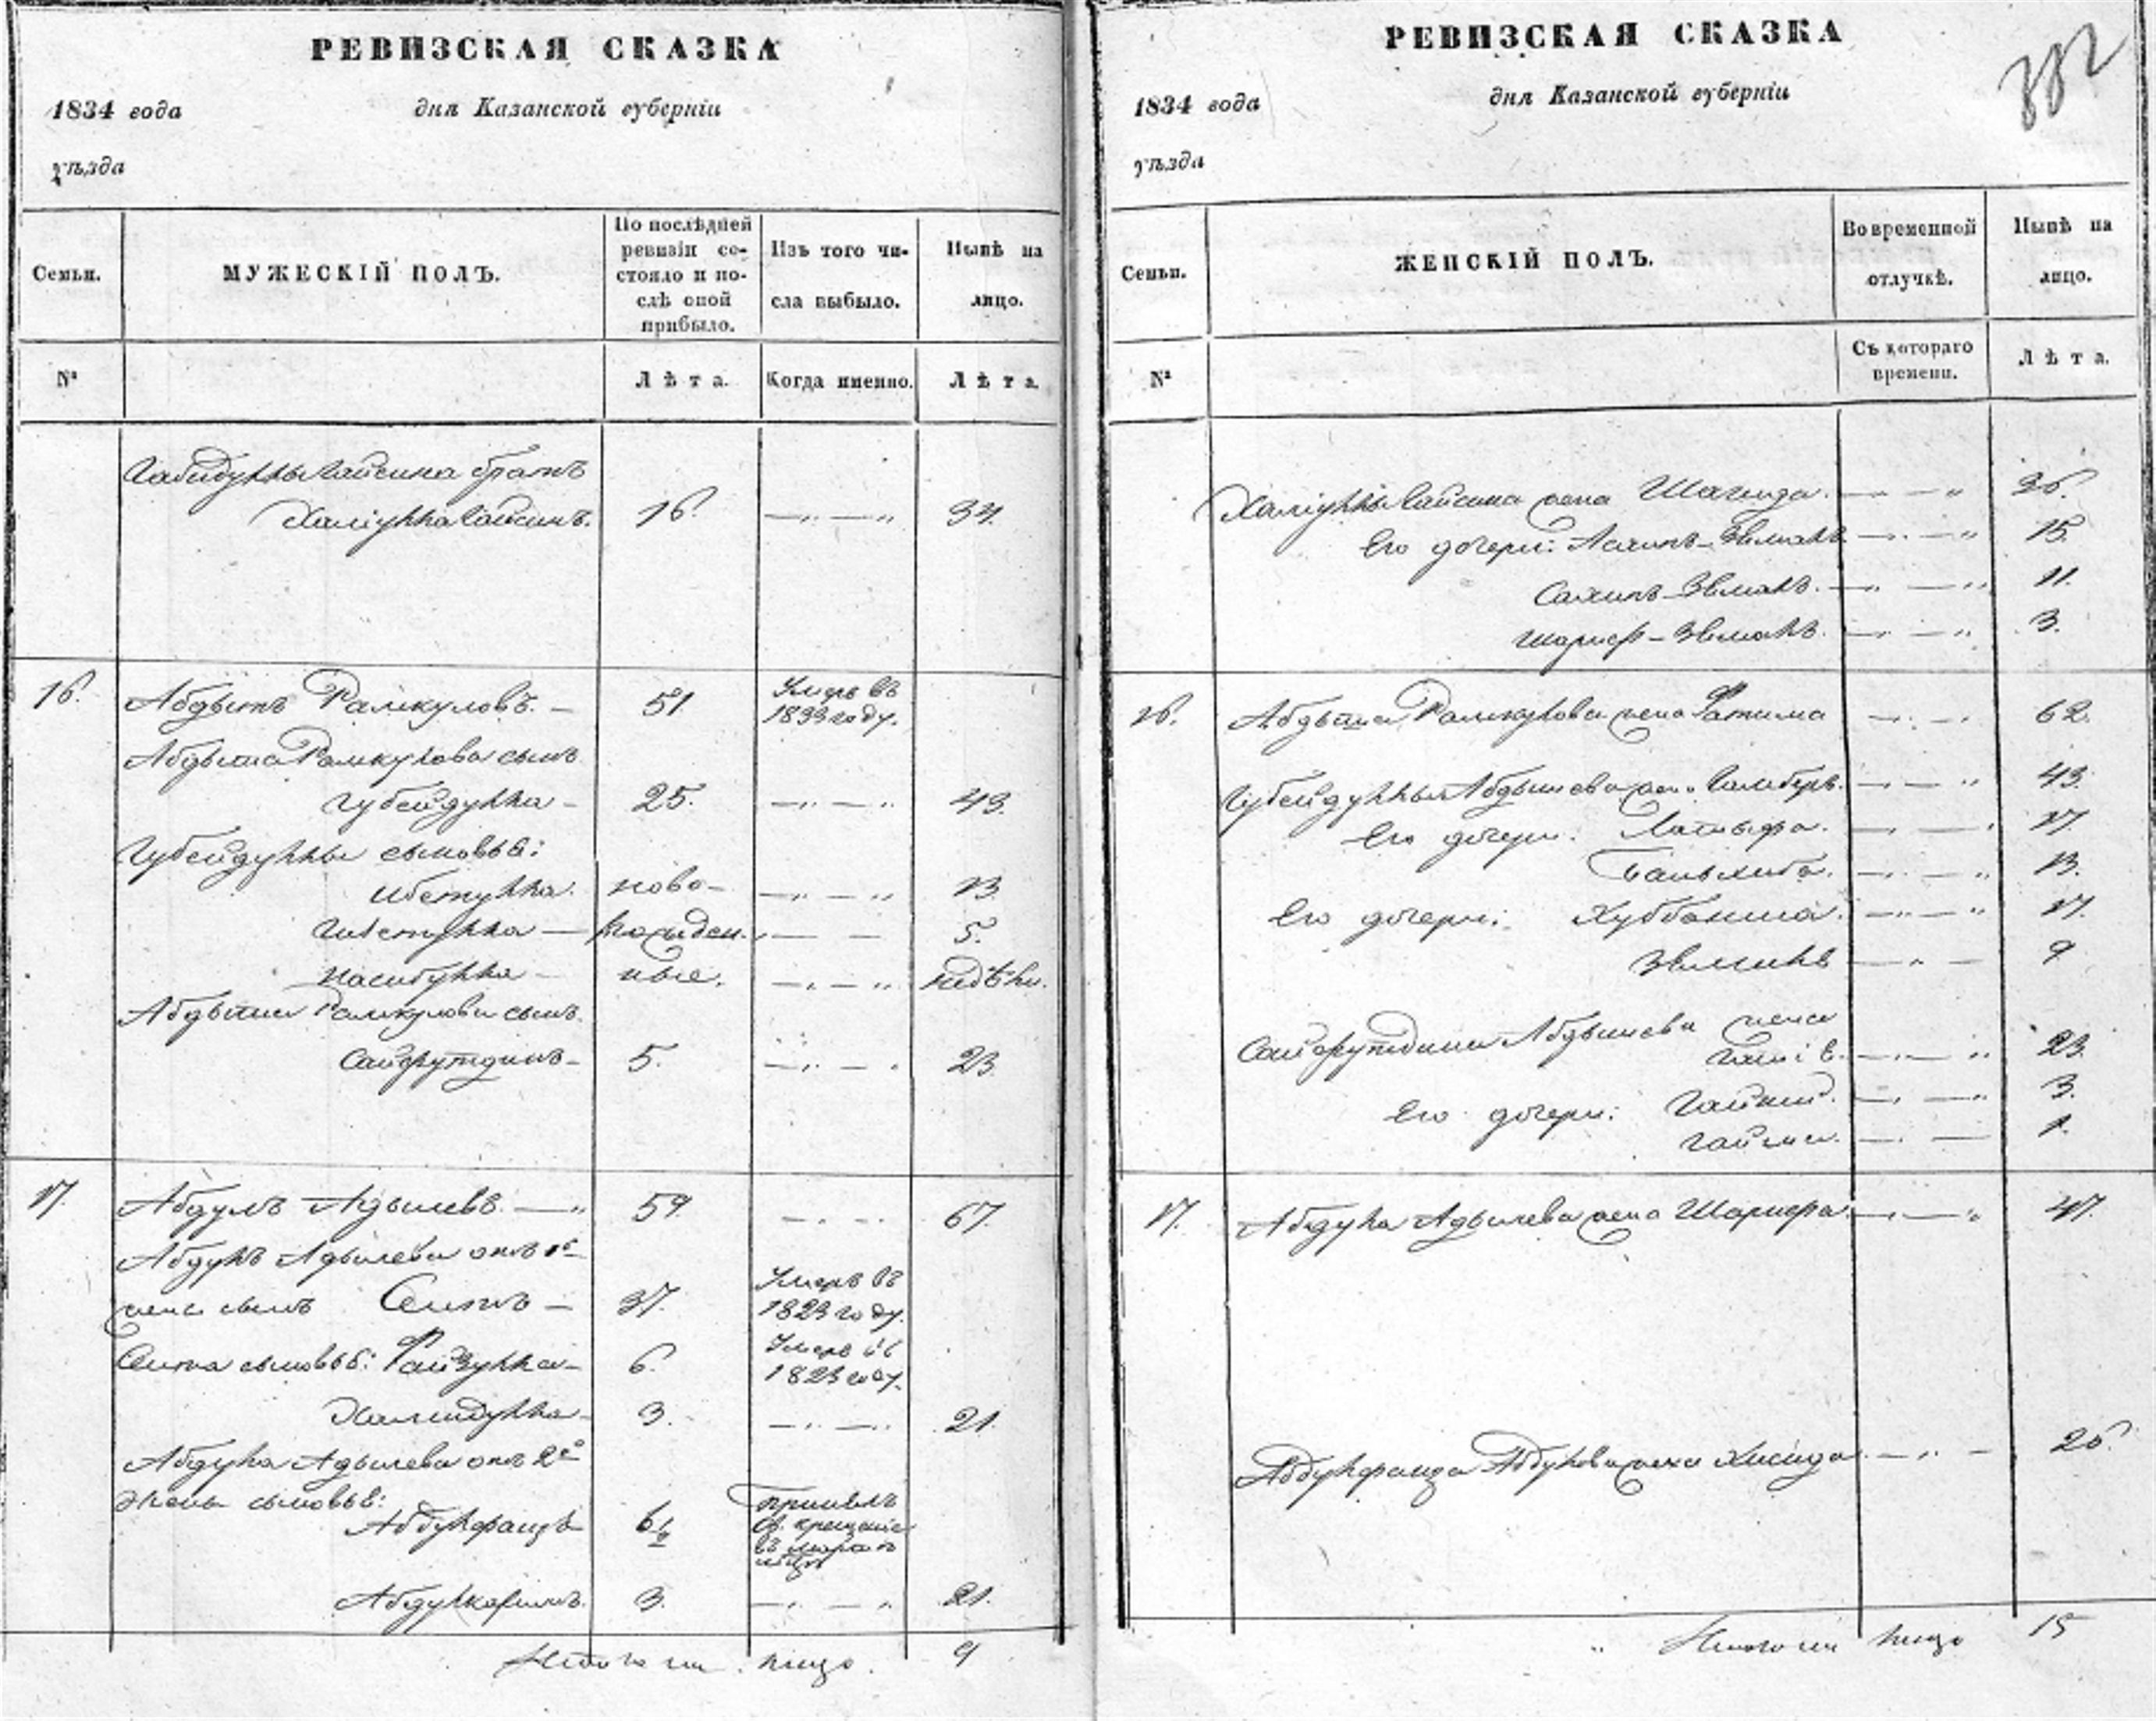 РЕВИЗСКАЯ СКАЗКА
1834 года
дня Казанской губерніи
уѣзда
Семьи.
МУЖЕСКІЙ ПОЛЪ.
По послѣдней ревизіи состояло и послѣ оной прибыло.
Изъ того числа выбыло.
Нынѣ на лицо.
№
Лѣта.
Когда именно.
Лѣта.
Габидуллы Гайсина братъ
Халіулла Гайсинъ. 16. 34.
16. Абдышъ Рамкуловъ. 51 Умеръ въ
1833 году.
Абдыша Рамкулова сынъ
Губейдулла 25. 43.
Губейдуллы сыновья:
ново-
13.
рожден. 5.
Насибулла ные. недѣли.
Абдыша Рамкулова сынъ
Сайфутдинъ 5. 23.
17. Абдулъ Адылевъ. 59. 67.
Абдулъ Адылева отъ 1й
жены сынъ Сеитъ 37. Умеръ въ
1823 году.
Сеита сыновья: Файзулла 6. Умеръ въ
1823 году.
Хамидулла 3. 21.
Абдула Адылева отъ 2й
жены сыновья:
Абдулфаизъ 6½ принялъ
св. крещеніе
въ
Абдулкаримъ. 3. 21.
Итого на лицо. 9
РЕВИЗСКАЯ СКАЗКА
382
1834 года
дня Казанской губерніи
уѣзда
Семьи.
ЖЕНСКІЙ ПОЛЪ.
Во временной отлучкѣ.
Нынѣ на лицо.
№
Съ котораго времени.
Лѣта.
Халіуллы Гайсина жена Шагида. 36.
Его дочери: 15.
11.
3.
16. Абдыша Рамкулова жена Фатима 62.
Губейдуллы Абдышева жена 43.
Его дочери: Латыфа. 17.
13.
Его дочери: Хуббаниса. 17.
9
Сайфутдина Абдышева жена
23.
Его дочери: 3.
1.
17. Абдула Адылева жена Шарифа. 47.
Абдулфаиза Абдулова жена 26.
Итого на лицо 15